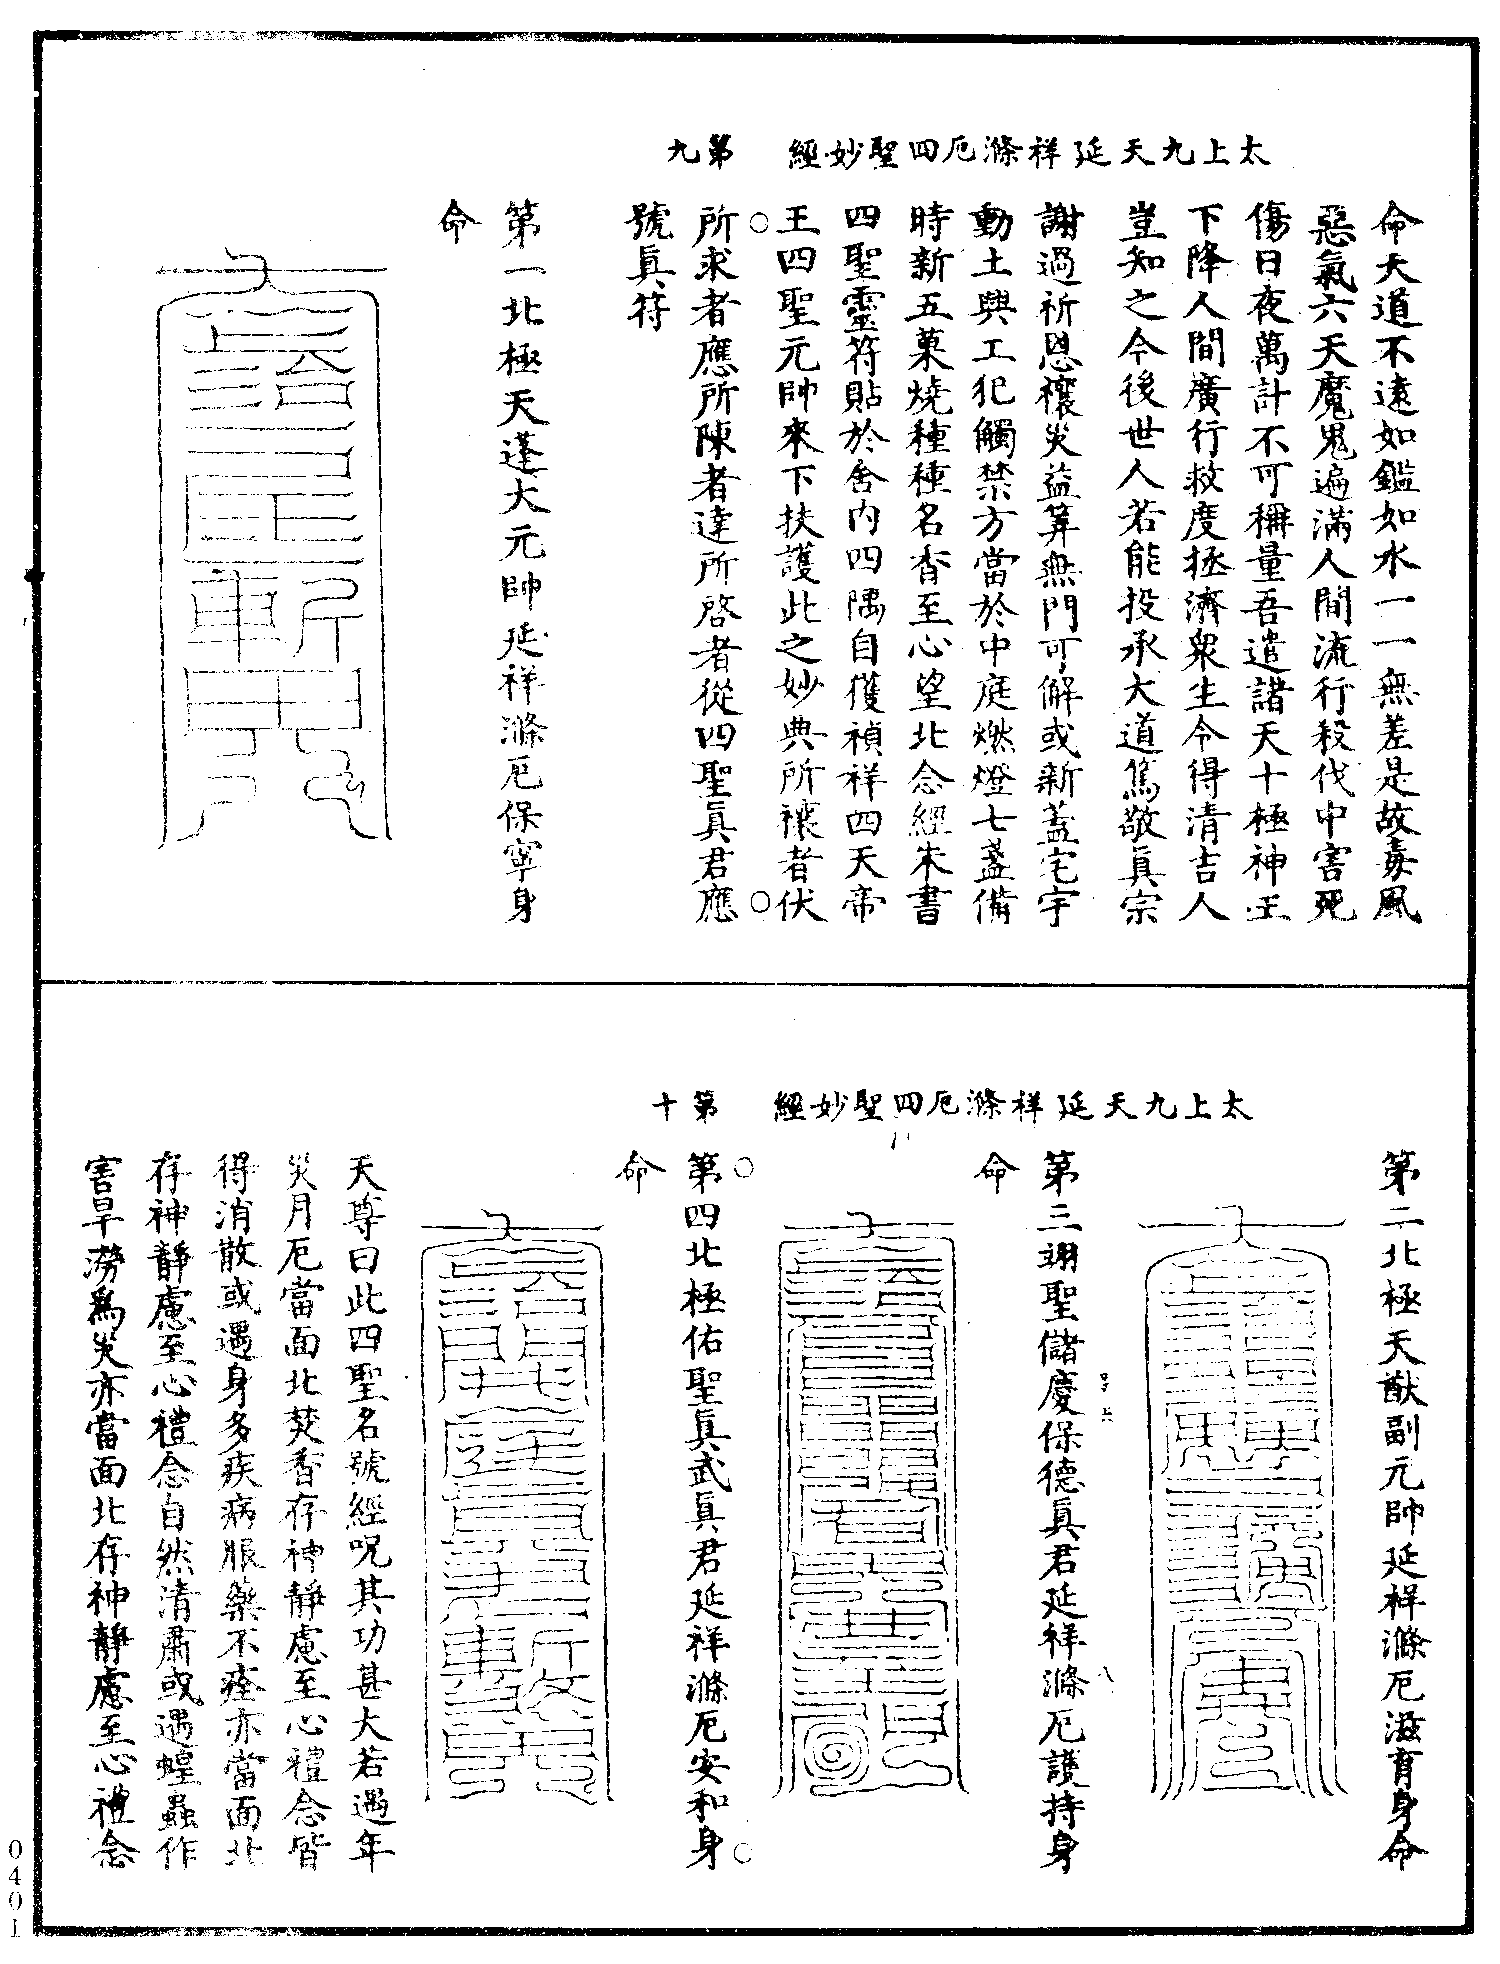 太上九天延祥滌厄四聖妙經　第九
命大道不遠如鑑如水一一無差是故毒風
惡氣六天魔鬼遍滿人間流行殺伐中害死
傷日夜萬計不可稱量吾遣諸天十極神王
下降人間廣行救度拯濟衆生令得清吉人
豈知之今後世人若能投承大道篤敬眞宗
謝過祈恩禳災益筭無門可解或新蓋宅宇
動土興工犯觸禁方當於中庭燃燈七盞備
時新五菓燒種種名香至心望北念經朱書
四聖靈符貼於舍內四隅自獲禎祥四天帝
王四聖元帥來下扶護此之妙典所禳者伏
所求者應所陳者達所啓者從四聖眞君應
號眞符
第一北極天蓬大元帥延祥滌厄保寧身
命
太上九天延祥滌厄四聖妙經　第十
第二北極天猷副元帥延祥滌厄滋育身命
第三翊聖儲慶保德眞君延祥滌厄護持身
命
第四北極佑聖眞武眞君延祥滌厄安和身
命
天尊曰此四聖名號經呪其功甚大若遇年
災月厄當面北焚香存神靜慮至心禮念皆
得消散或遇身多疾病服藥不痊亦當面北
存神靜慮至心禮念自然清肅或遇蝗蟲作
害旱澇爲災亦當面北存神靜慮至心禮念
0401